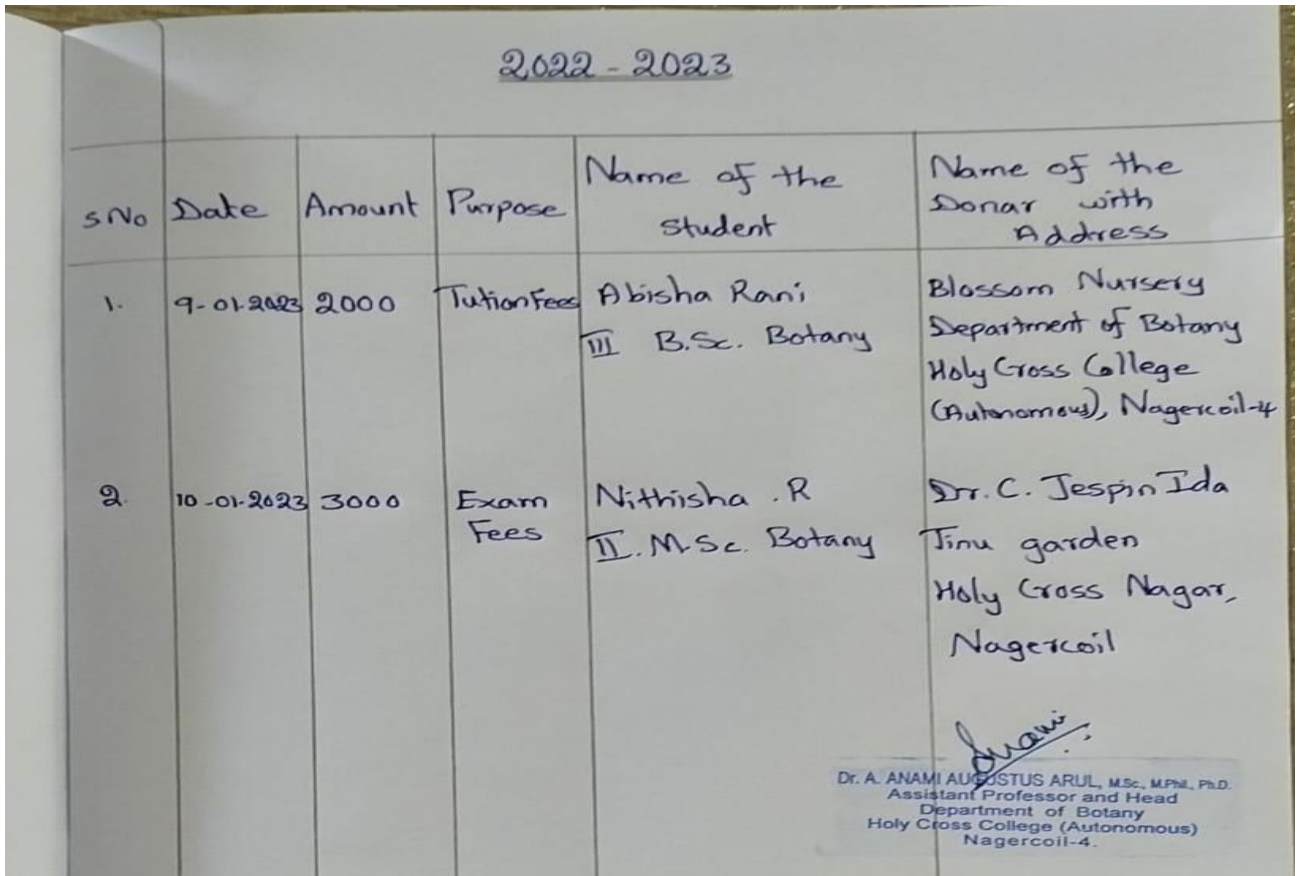 2022 - 2023
S No Date Amount Purpose Name of the Student Name of the Donar with Address
1. 9-01-2023 2000 Tution Fees Abisha Rani Blossom Nursery
III B.Sc. Botany Department of Botany
Holy Cross College
(Autonomous), Nagercoil-4
2. 10-01-2023 3000 Exam Nithisha .R Dr. C. Jespin Ida
Fees II. M.Sc. Botany Jinu garden
Holy Cross Nagar,
Nagercoil
Dr. A. ANAMI AUGUSTUS ARUL, M.Sc., M.Phil., Ph.D.
Assistant Professor and Head
Department of Botany
Holy Cross College (Autonomous)
Nagercoil-4.